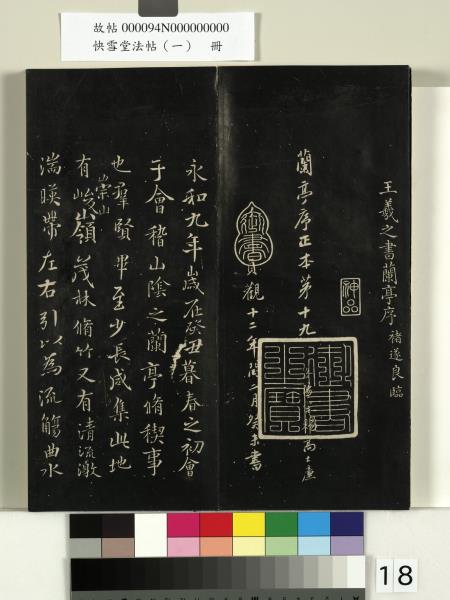 故帖 000094N000000000
快雪堂法帖（一） 冊
王羲之書蘭亭序 褚遂良臨
神品
蘭亭序正本第十九
御書
貞觀十二年閏二月癸未書
御書之寶
永和九年歲在癸丑暮春之初會
于會稽山陰之蘭亭脩稧事
也羣賢畢至少長咸集此地
有崇山
峻嶺茂林脩竹又有清流激
湍暎帶左右引以為流觴曲水
18